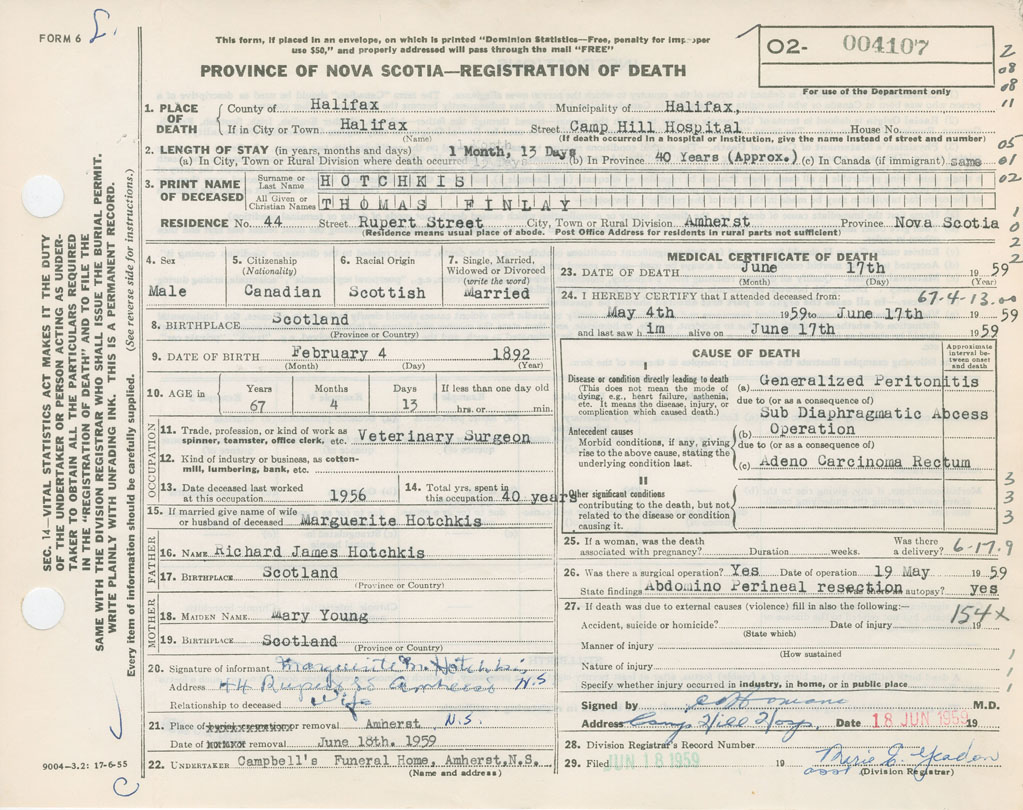 FORM 6
This form, if placed in an envelope, on which is printed "Dominion Statistics—Free, penalty for improper
use $50," and properly addressed will pass through the mail "FREE"
PROVINCE OF NOVA SCOTIA—REGISTRATION OF DEATH
O2- 004107
For use of the Department only
2
08
08
11
05
01
02
1
0
2
2
SEC. 14—VITAL STATISTICS ACT MAKES IT THE DUTY
OF THE UNDERTAKER OR PERSON ACTING AS UNDER-
TAKER TO OBTAIN ALL THE PARTICULARS REQUIRED
IN THE "REGISTRATION OF DEATH" AND TO FILE THE
SAME WITH THE DIVISION REGISTRAR WHO SHALL ISSUE THE BURIAL PERMIT.
WRITE PLAINLY WITH UNFADING INK. THIS IS A PERMANENT RECORD.
Every item of information should be carefully supplied. (See reverse side for instructions.)
1. PLACE OF DEATH
County of Halifax Municipality of Halifax,
If in City or Town Halifax Street Camp Hill Hospital House No.
(Name) (If death occurred in a hospital or institution, give the name instead of street and number)
2. LENGTH OF STAY (in years, months and days) 1 Month, 13 Days
(a) In City, Town or Rural Division where death occurred (b) In Province 40 Years (Approx.) (c) In Canada (if immigrant) same
3. PRINT NAME OF DECEASED
Surname or Last Name HOTCHKIS
All Given or Christian Names THOMAS FINLAY
RESIDENCE No. 44 Street Rupert Street City, Town or Rural Division Amherst Province Nova Scotia
(Residence means usual place of abode. Post Office Address for residents in rural parts not sufficient)
4. Sex
Male
5. Citizenship
(Nationality)
Canadian
6. Racial Origin
Scottish
7. Single, Married,
Widowed or Divorced
(write the word)
Married
8. BIRTHPLACE Scotland
(Province or Country)
9. DATE OF BIRTH February 4 1892
(Month) (Day) (Year)
10. AGE in Years Months Days If less than one day old
67 4 13 hrs. or min.
OCCUPATION
11. Trade, profession, or kind of work as
spinner, teamster, office clerk, etc. Veterinary Surgeon
12. Kind of industry or business, as cotton-
mill, lumbering, bank, etc.
13. Date deceased last worked
at this occupation 1956
14. Total yrs. spent in
this occupation 40 years
15. If married give name of wife
or husband of deceased Marguerite Hotchkis
FATHER
16. NAME Richard James Hotchkis
17. BIRTHPLACE Scotland
(Province or Country)
MOTHER
18. MAIDEN NAME Mary Young
19. BIRTHPLACE Scotland
(Province or Country)
20. Signature of informant Marguerite M. Hotchkis
Address 44 Rupert St Amherst N.S
Relationship to deceased wife
21. Place of burial, cremation or removal Amherst N.S.
Date of burial or removal June 18th. 1959
22. UNDERTAKER Campbell's Funeral Home, Amherst, N.S.
(Name and address)
9004—3.2: 17-6-55
MEDICAL CERTIFICATE OF DEATH
23. DATE OF DEATH June 17th 1959
(Month) (Day) (Year)
24. I HEREBY CERTIFY that I attended deceased from: 67-4-13.00
May 4th 1959 to June 17th 1959
and last saw him alive on June 17th 1959
CAUSE OF DEATH
Approximate
interval be-
tween onset
and death
I
Disease or condition directly leading to death
(This does not mean the mode of
dying, e.g., heart failure, asthenia,
etc. It means the disease, injury, or
complication which caused death.)
(a) Generalized Peritonitis
due to (or as a consequence of)
Sub Diaphragmatic Abcess
Antecedent causes
Morbid conditions, if any, giving
rise to the above cause, stating the
underlying condition last.
(b) Operation
due to (or as a consequence of)
(c) Adeno Carcinoma Rectum
II
Other significant conditions
contributing to the death, but not
related to the disease or condition
causing it.
3
3
3
25. If a woman, was the death
associated with pregnancy? Duration weeks. Was there
a delivery? 6-17.9
26. Was there a surgical operation? Yes Date of operation 19 May 1959
State findings Abdomino Perineal resection Was there an autopsy? yes
27. If death was due to external causes (violence) fill in also the following:—
154X
Accident, suicide or homicide? Date of injury 19
(State which)
Manner of injury
(How sustained
Nature of injury
Specify whether injury occurred in industry, in home, or in public place
1
1
1
Signed by M.D.
Address Camp Hill Hosp. Date 18 JUN 1959 19
28. Division Registrar's Record Number
29. Filed JUN 18 1959 19
asst (Division Registrar)